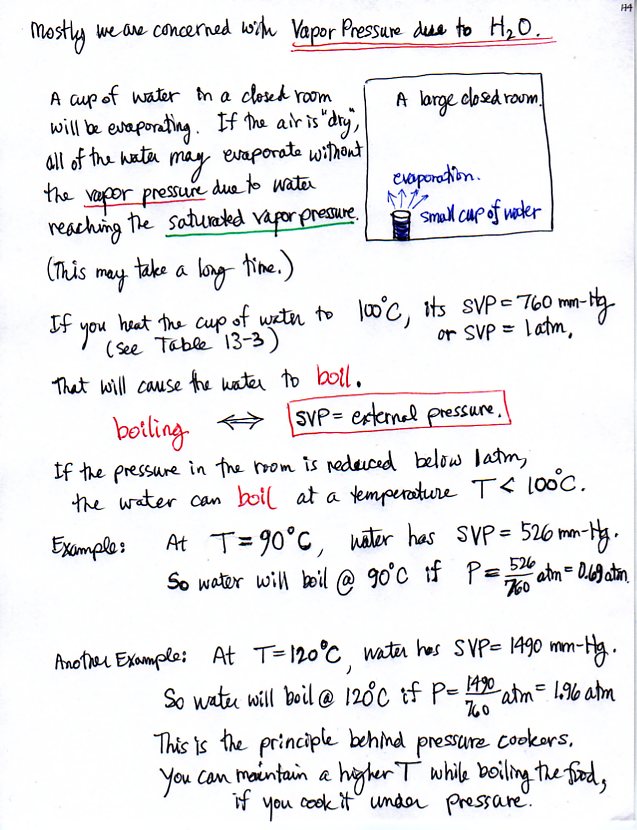 144
Mostly we are concerned with Vapor Pressure due to H₂O.
A cup of water in a closed room
will be evaporating. If the air is "dry",
all of the water may evaporate without
the vapor pressure due to water
reaching the saturated vapor pressure.
A large closed room.
evaporation.
small cup of water
(This may take a long time.)
If you heat the cup of water to 100°C, its SVP = 760 mm-Hg
(see Table 13-3) or SVP = 1 atm.
That will cause the water to boil.
boiling ⟺ SVP = external pressure.
If the pressure in the room is reduced below 1 atm,
the water can boil at a temperature T < 100°C.
Example: At T = 90°C, water has SVP = 526 mm-Hg.
So water will boil @ 90°C if P = 526/760 atm = 0.69 atm.
Another Example: At T = 120°C, water has SVP = 1490 mm-Hg.
So water will boil @ 120°C if P = 1490/760 atm = 1.96 atm
This is the principle behind pressure cookers.
You can maintain a higher T while boiling the food,
if you cook it under pressure.